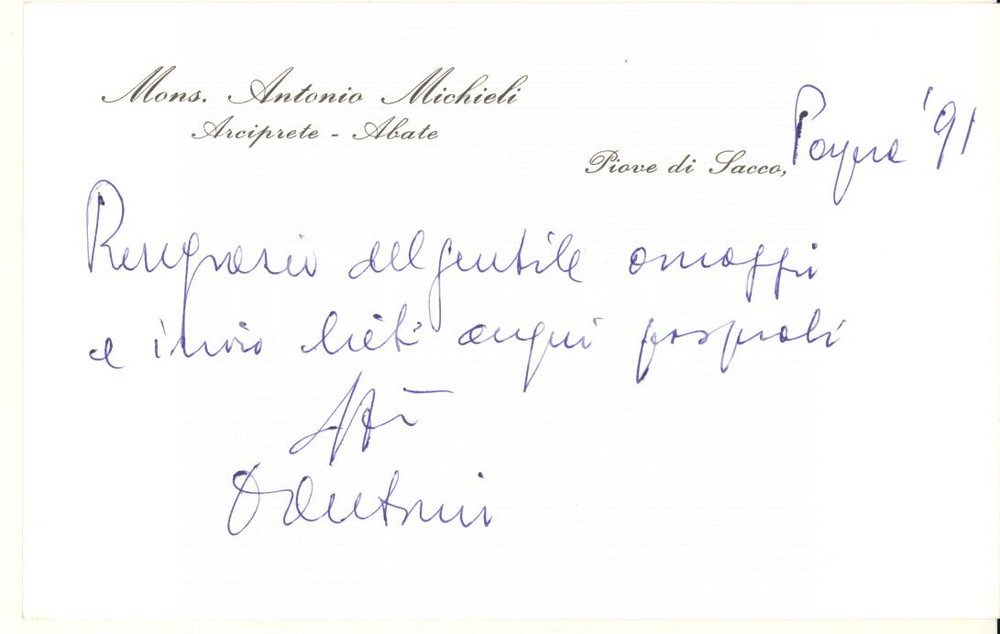 Mons. Antonio Michieli
Arciprete - Abate
Piove di Sacco, Pasqua '91
Ringrazio del gentile omaggio
e invio lieti auguri pasquali